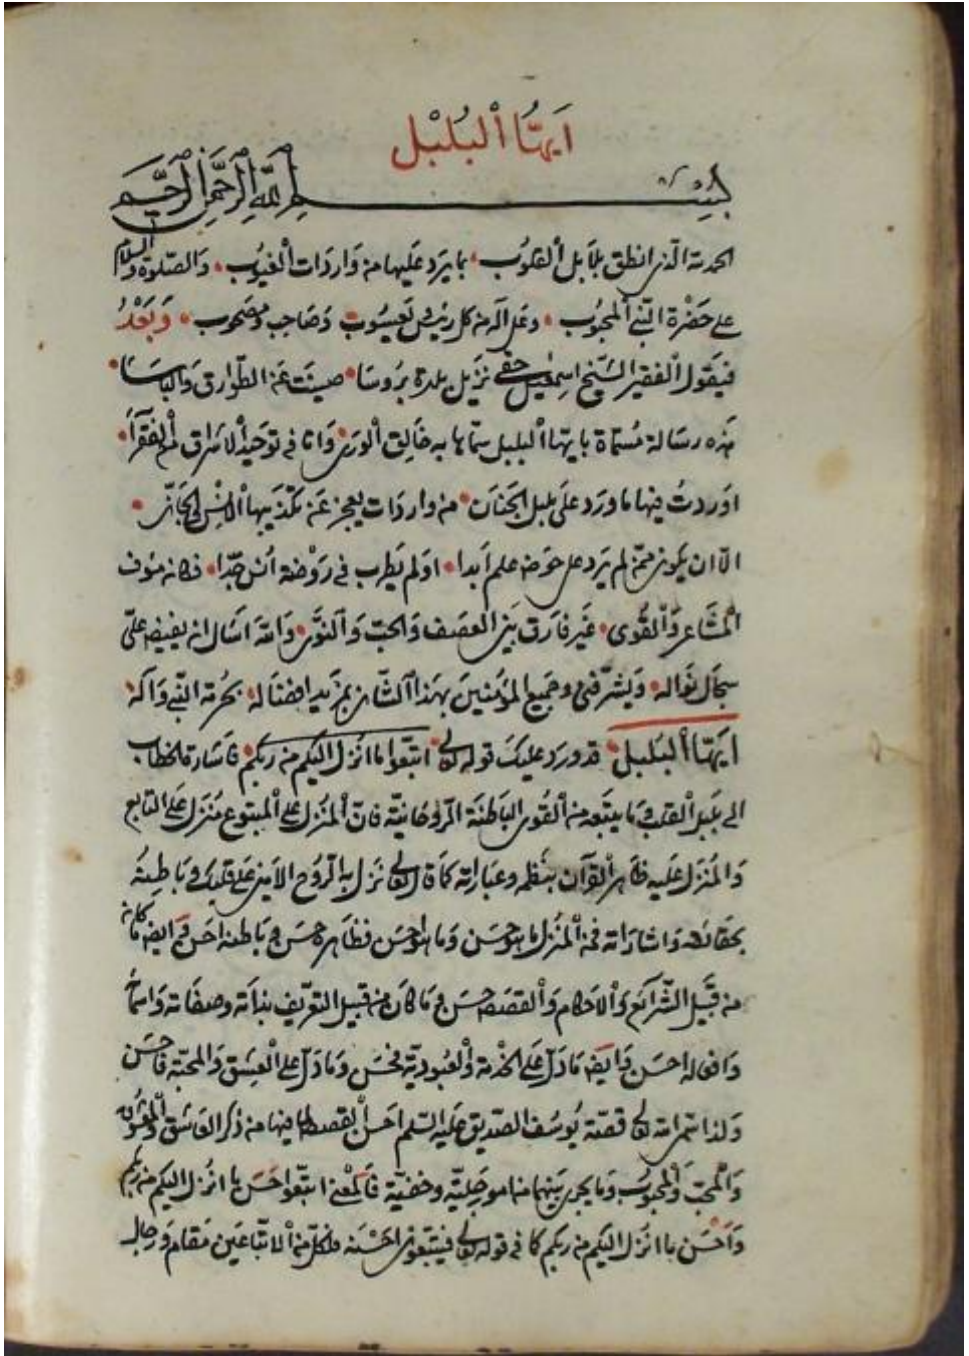 ايها البلبل
بسم الله الرحمن الرحيم
الحمد لله الذى انطق بلابل القلوب بما يرد عليها من واردات الغيوب والصلوة والسلام
على حضرة النبى المحبوب وعلى آله من كل رئيس يعسوب وصاحب ومصحوب وبعد
فيقول الفقير الشيخ اسمعيل حقى نزيل بلدة بروسا صينت عن الطوارق والباسا
هذه رسالة مسماة بايها البلبل سماها به خالق الورى وانا فى توحيد الاشراق لم الفقرآ
اوردت فيها ما ورد على بلبل الجنان من واردات يعجز عن تكذيبها الانس والجان
الا ان يكون ممن لم يرد على حوض علم ابدا اولم يطرب فى روضة انس جدا فكانه مؤف
المشاعر والقوى غير فارق بين العصف والحب والنوى والله اسأل ان يفيض على
سجال نواله ويشرفنى وجميع المؤمنين بهذا الشان بمزيد افضاله بحرمة النبى وآله
ايها البلبل قد ورد عليك قوله تعالى اتبعوا ما انزل اليكم من ربكم فاشار فالخطاب
الى بلبل القلب وما يتبعه من القوى الباطنة الروحانية فان المنزل على المتبوع منزل على التابع
والمنزل عليه ظاهر القرآن بنظمه وعباراته كما قال تعالى نزل به الروح الامين على قلبك وباطنه
بحقائقه واشاراته فمن المنزل ما هو حسن وما هو احسن فظاهره حسن وباطنه احسن وايضا ما كان
من قبيل الشرائع والاحكام والقصص حسن وما كان من قبيل التعريف بذاته وصفاته واسمائه
وافعاله احسن وايضا ما دل على الخدمة والعبودية فحسن وما دل على العشق والمحبة فاحسن
ولذا سمى الله تعالى قصة يوسف الصديق عليه السلام احسن القصص لما فيها من ذكر العاشق والمعشوق
والمحب والمحبوب وما يجرى بينهما من امور جلية وخفية فالمعنى اتبعوا حسن ما انزل اليكم من ربكم
واحسن ما انزل اليكم من ربكم كما فى قوله تعالى فيتبعون احسنه فلكل من الاتباعين مقام ورجال